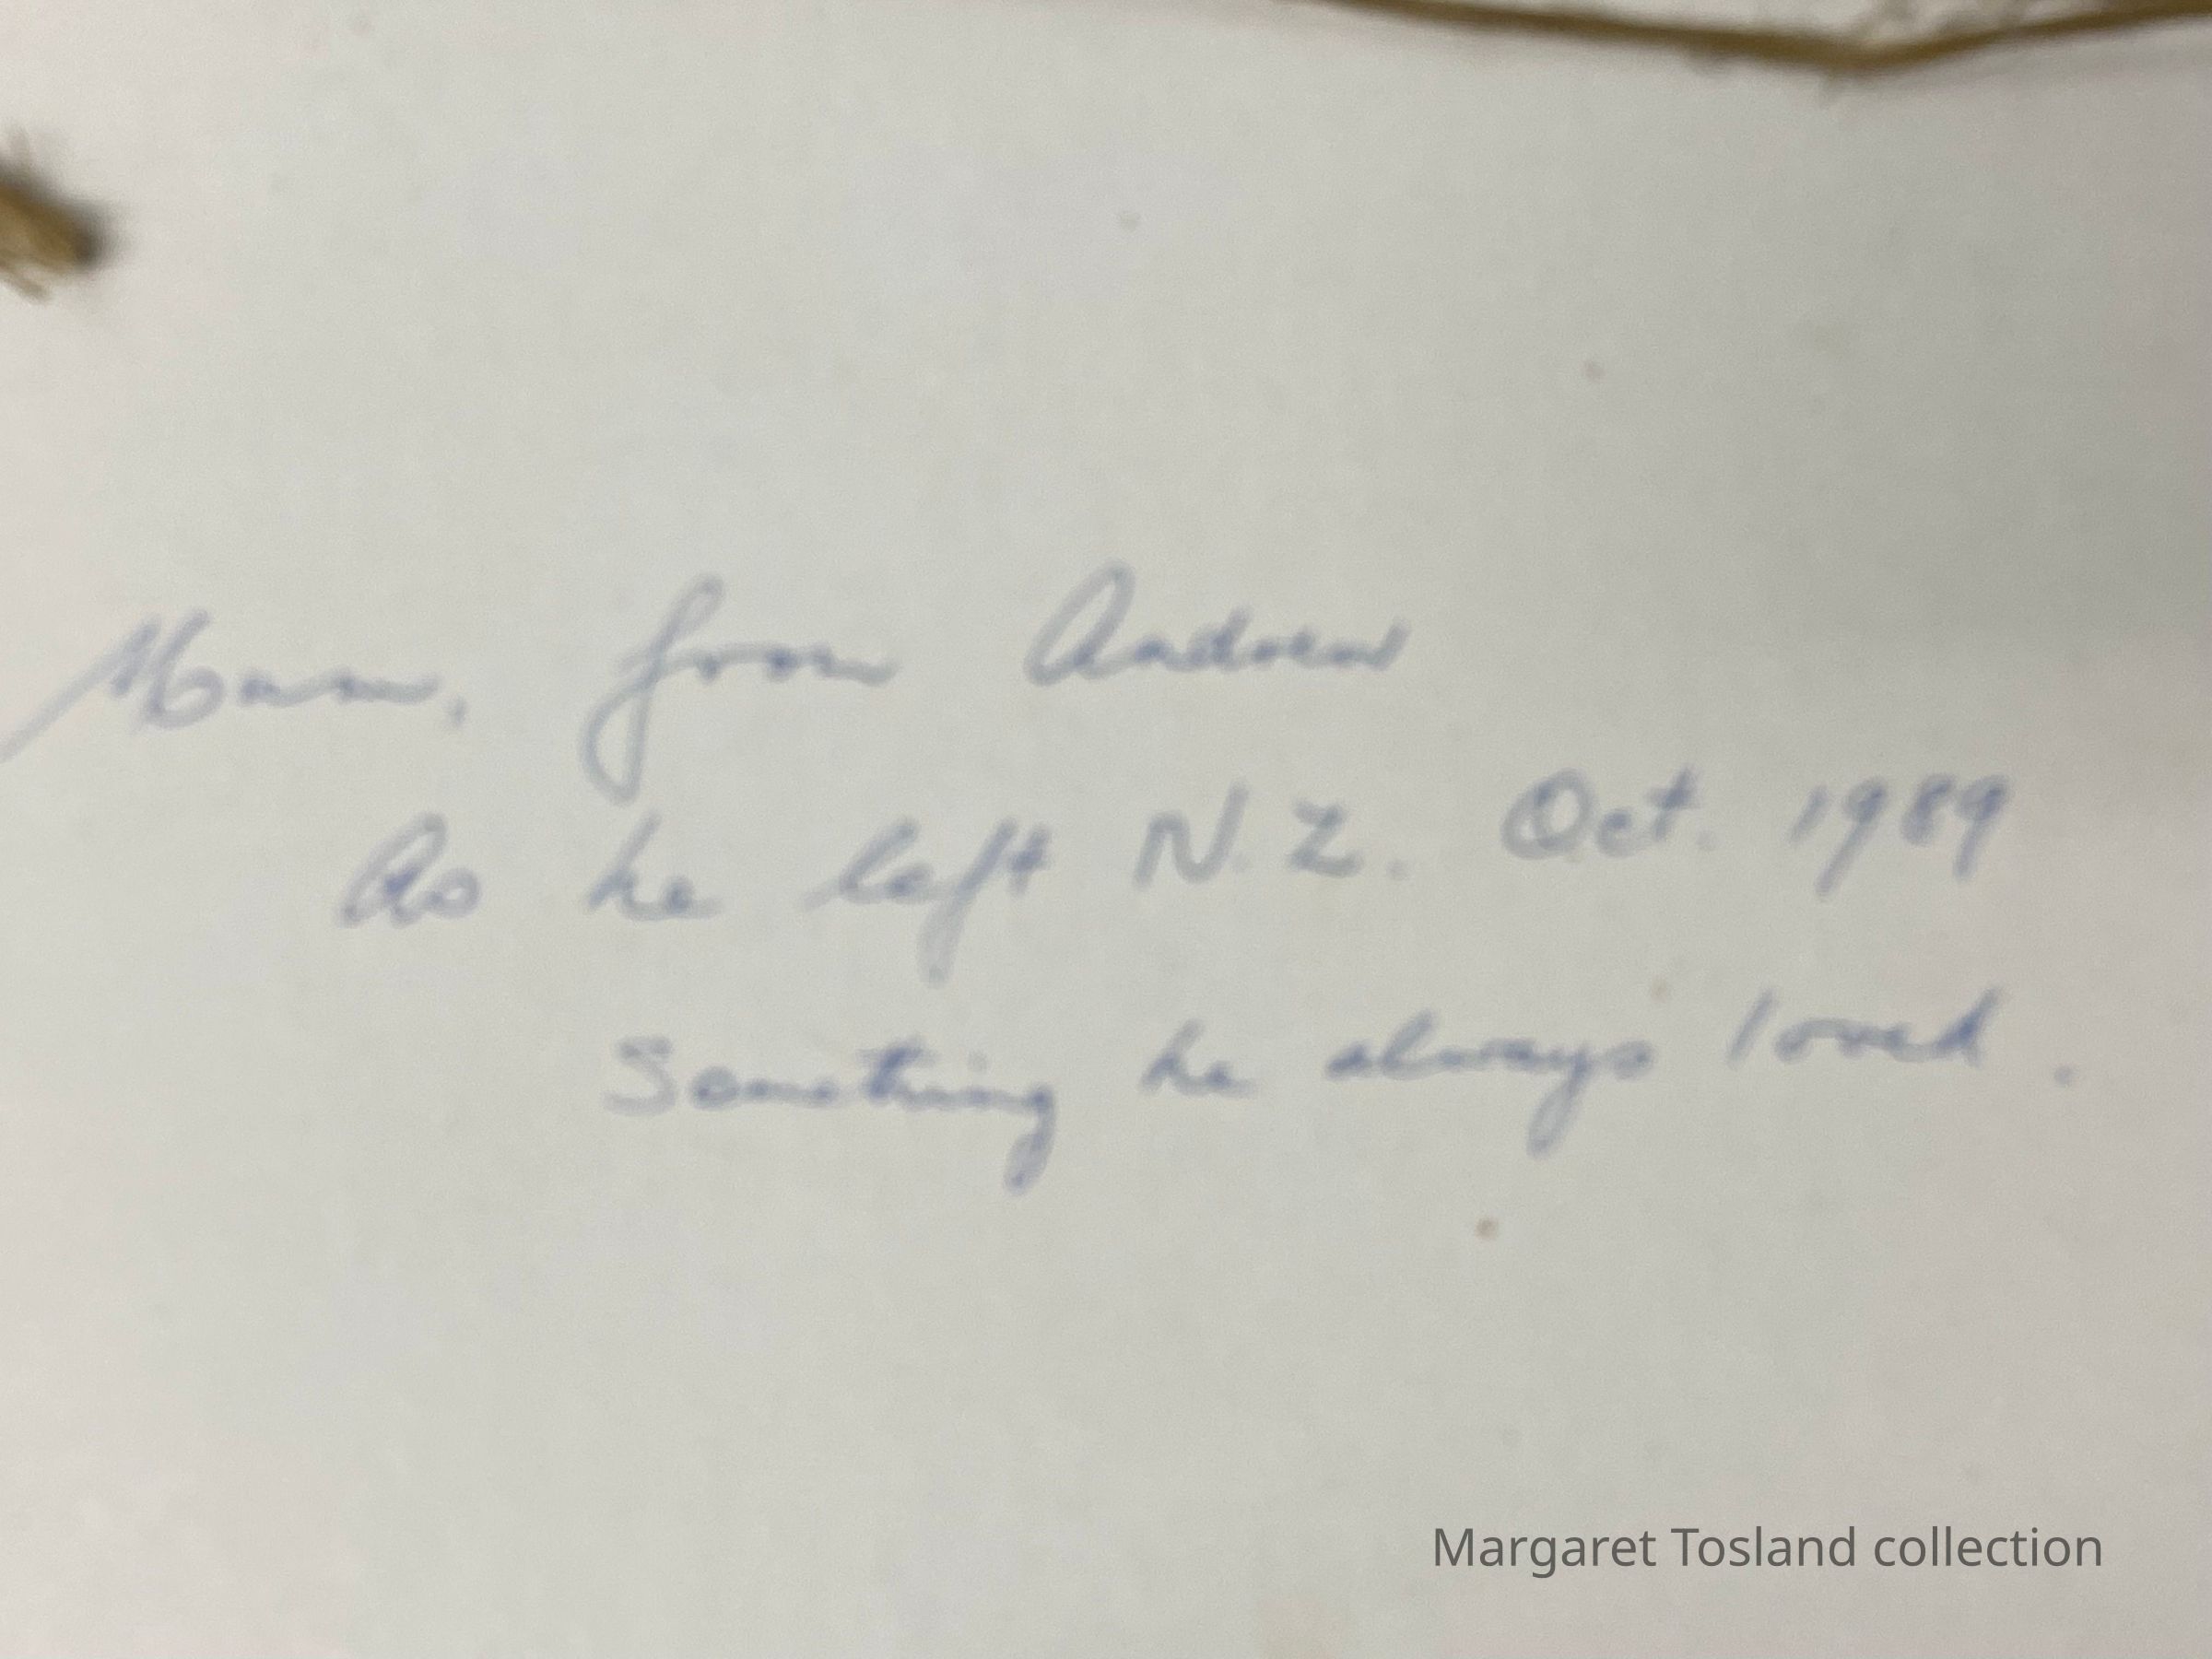 Mum, from Andrew
As he left N.Z. Oct. 1989
Something he always loved.
Margaret Tosland collection